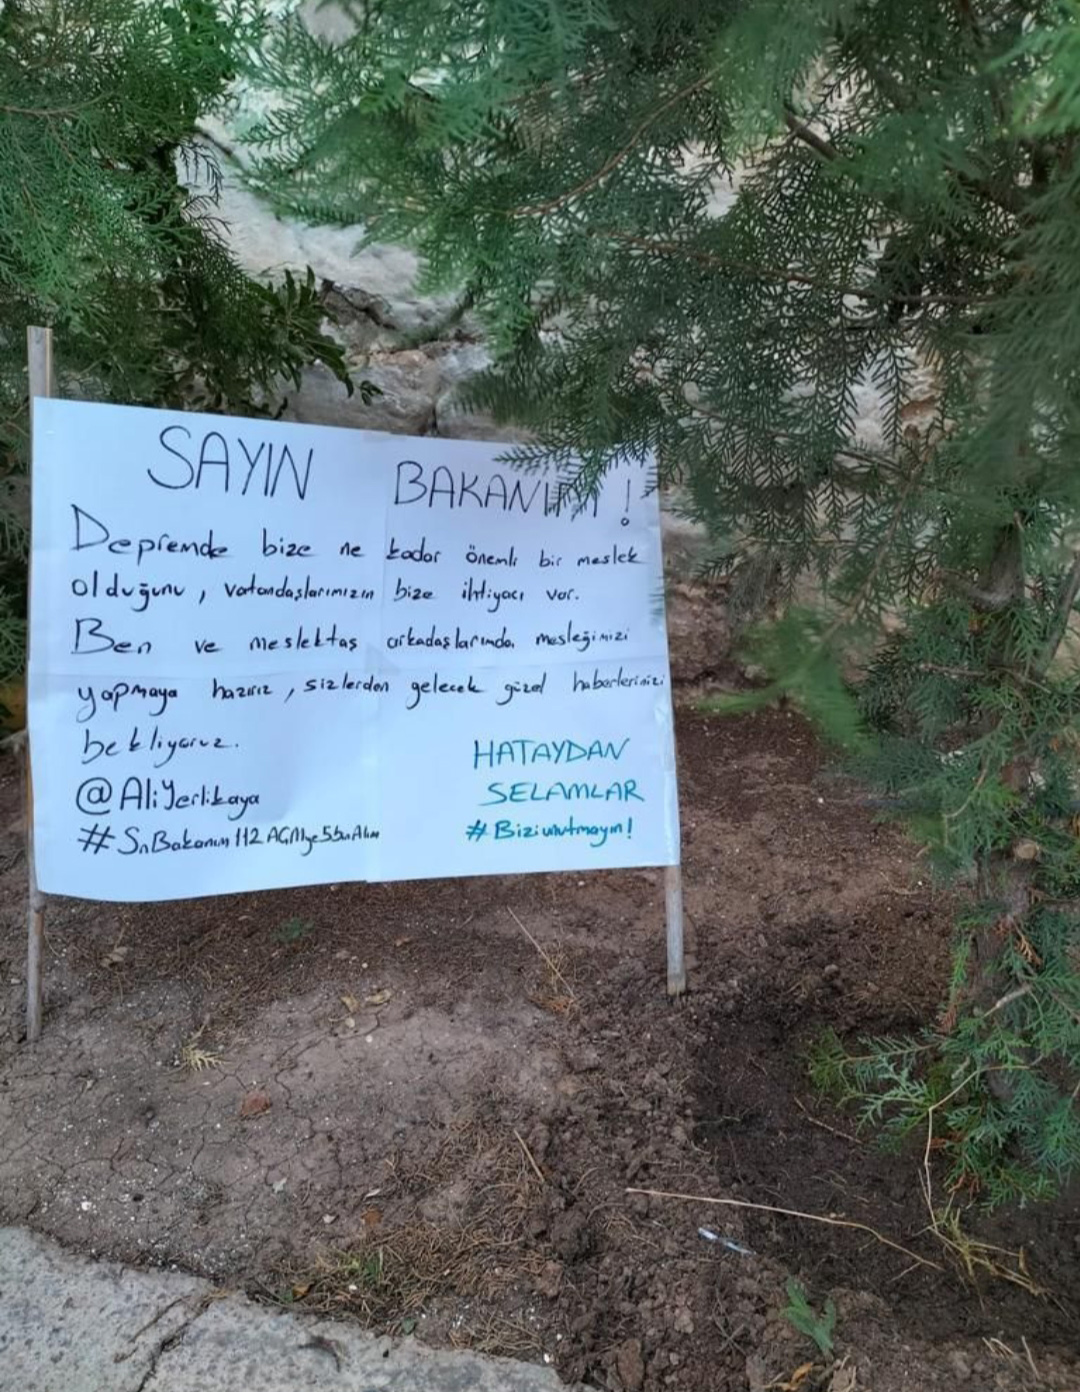 SAYIN BAKANIM !
Depremde bize ne kadar önemli bir meslek
olduğunu, vatandaşlarımızın bize ihtiyacı var.
Ben ve meslektaş arkadaşlarımda, mesleğimizi
yapmaya hazırız, sizlerden gelecek güzel haberlerinizi
bekliyoruz.
@AliYerlikaya
#SnBakanım112AGMye5binAlım
HATAYDAN
SELAMLAR
#Biziunutmayın!